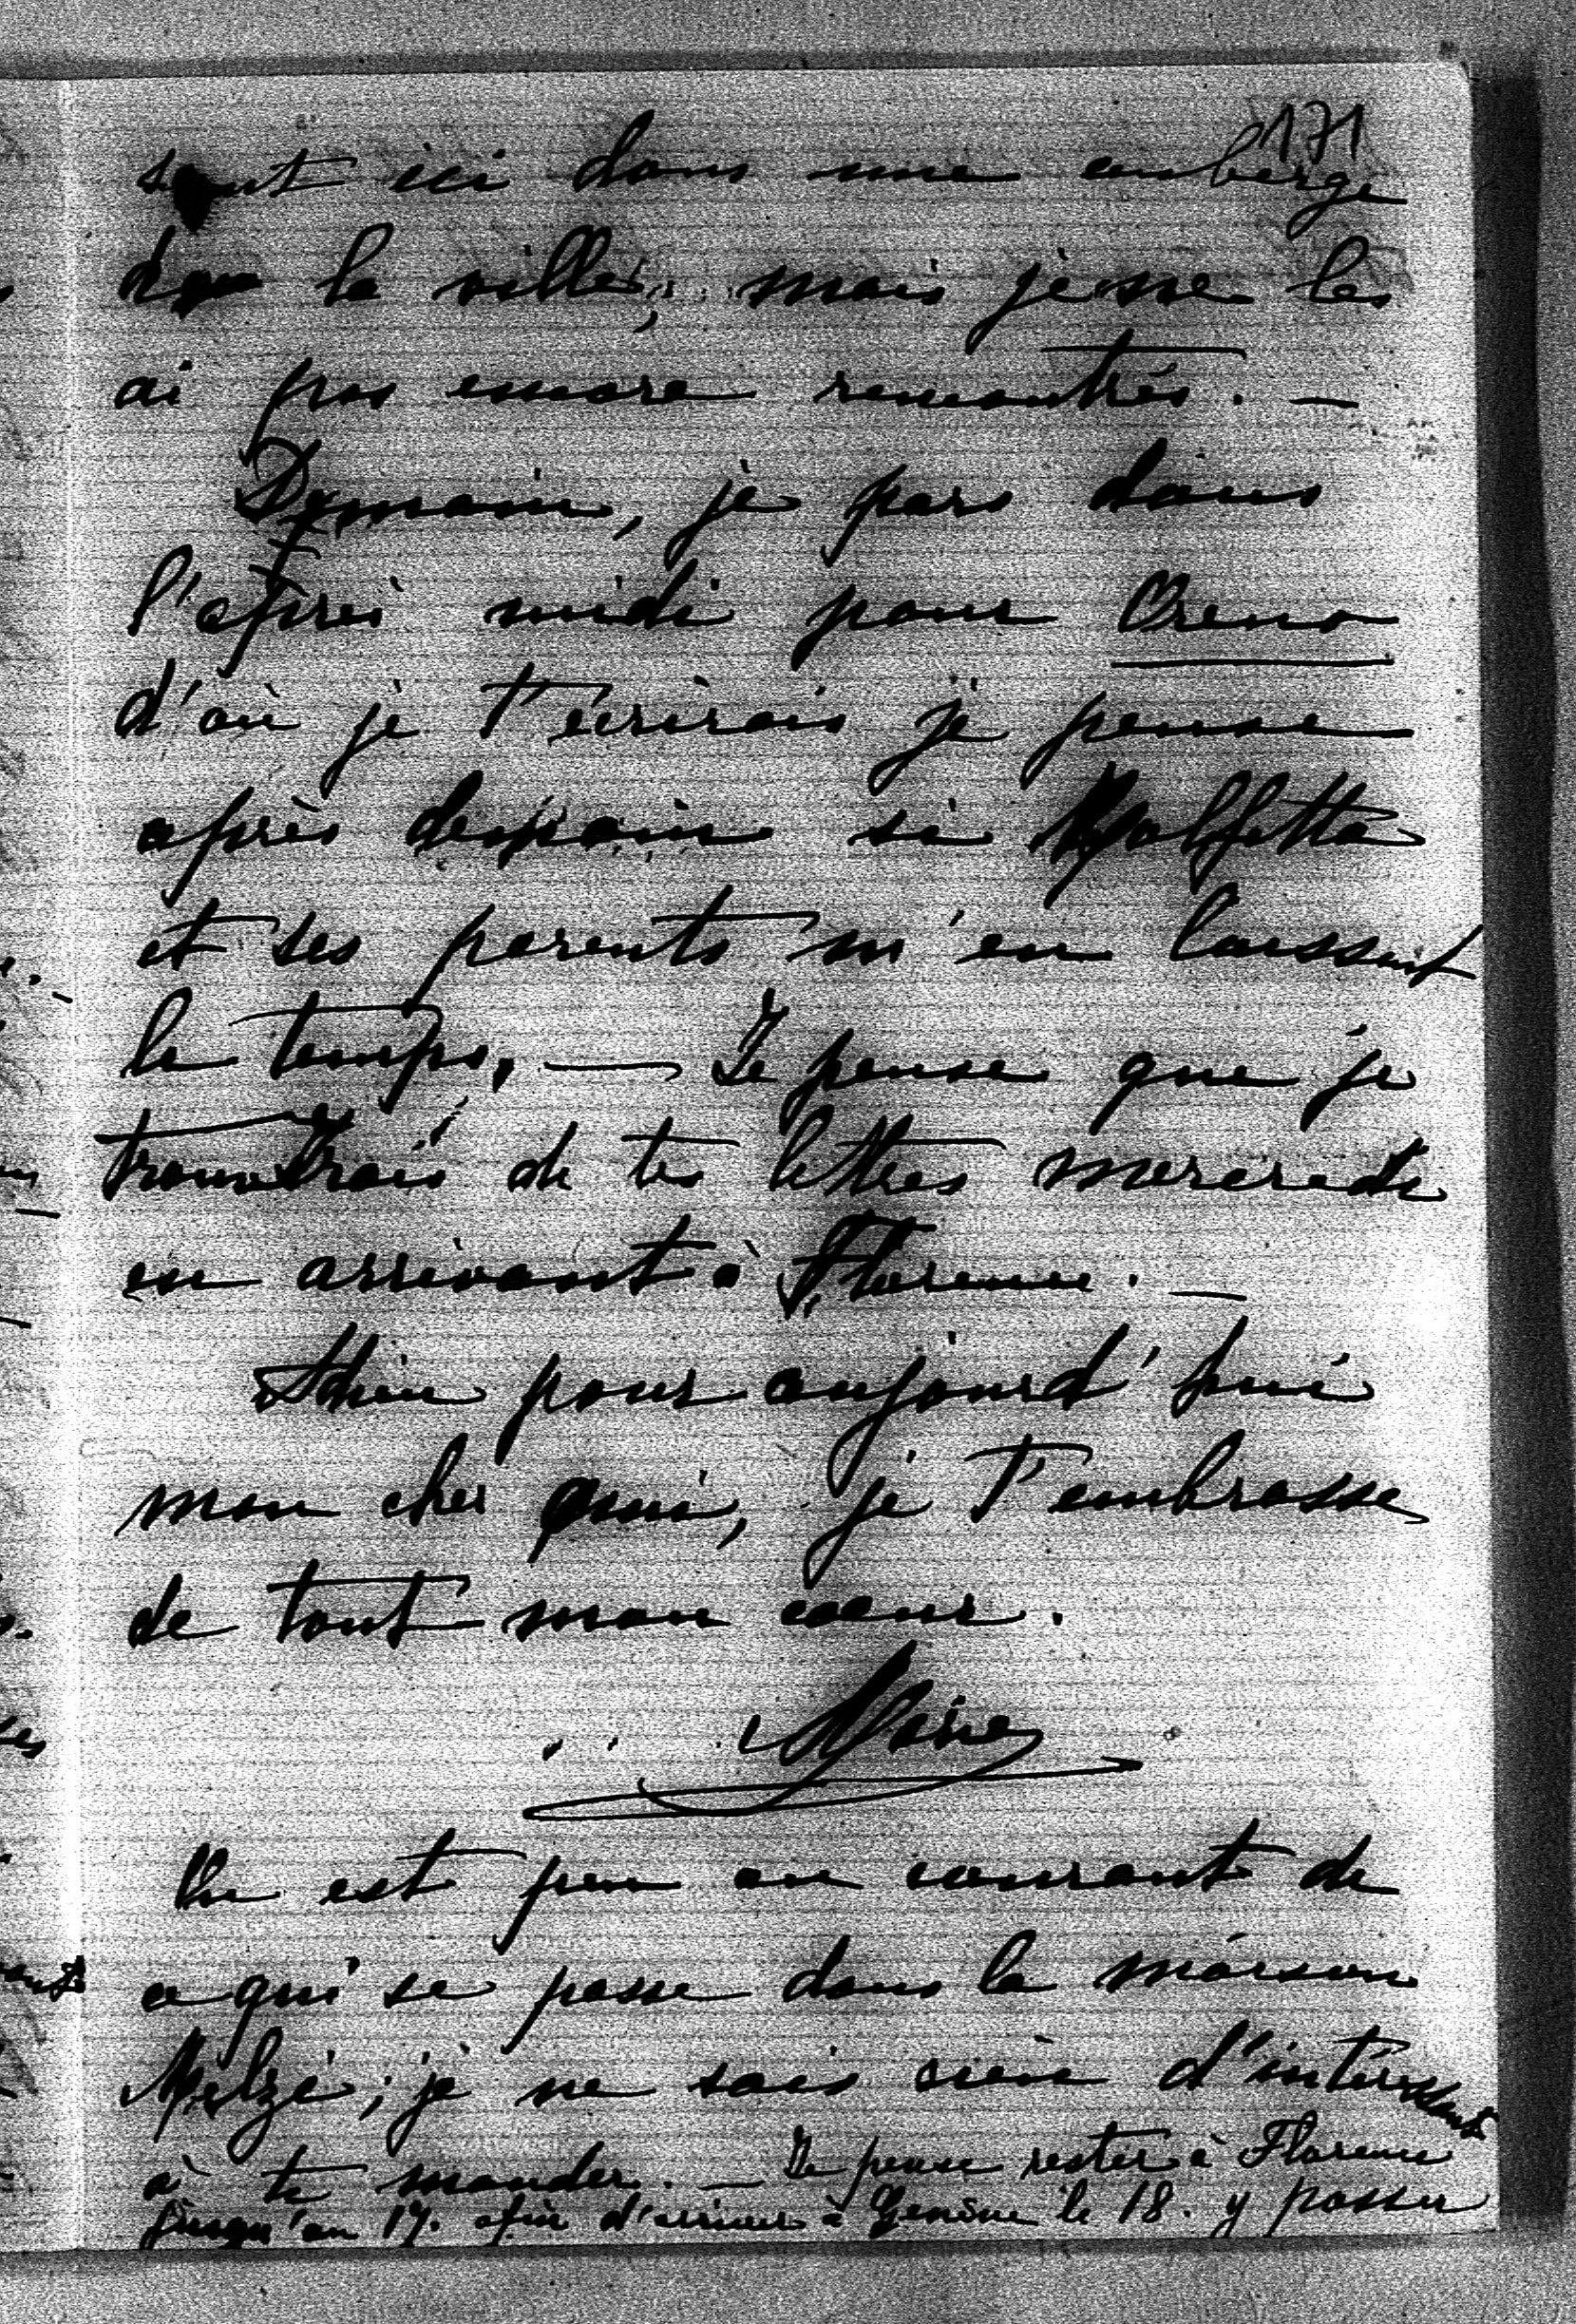 171
sont ici dans une auberge
de la ville, mais je ne les
ai pas encore rencontrés. —
Demain, je pars dans
l'après midi pour Oreno
d'où je t'écrirais je pense
après demain si Molfetta
et ses parents m'en laissent
le temps. — Je pense que je
trouverais de tes lettres mercredi
en arrivant à Florence. —
Adieu pour aujourd'hui
mon cher ami, je t'embrasse
de tout mon coeur.
Marie
L'on est peu au courant de
ce qui se passe dans la maison
Melzi; je ne sais rien d'intéressant
à te mander. — Je pense rester à Florence
jusqu'au 17. afin d'arriver à Genève le 18. y passer